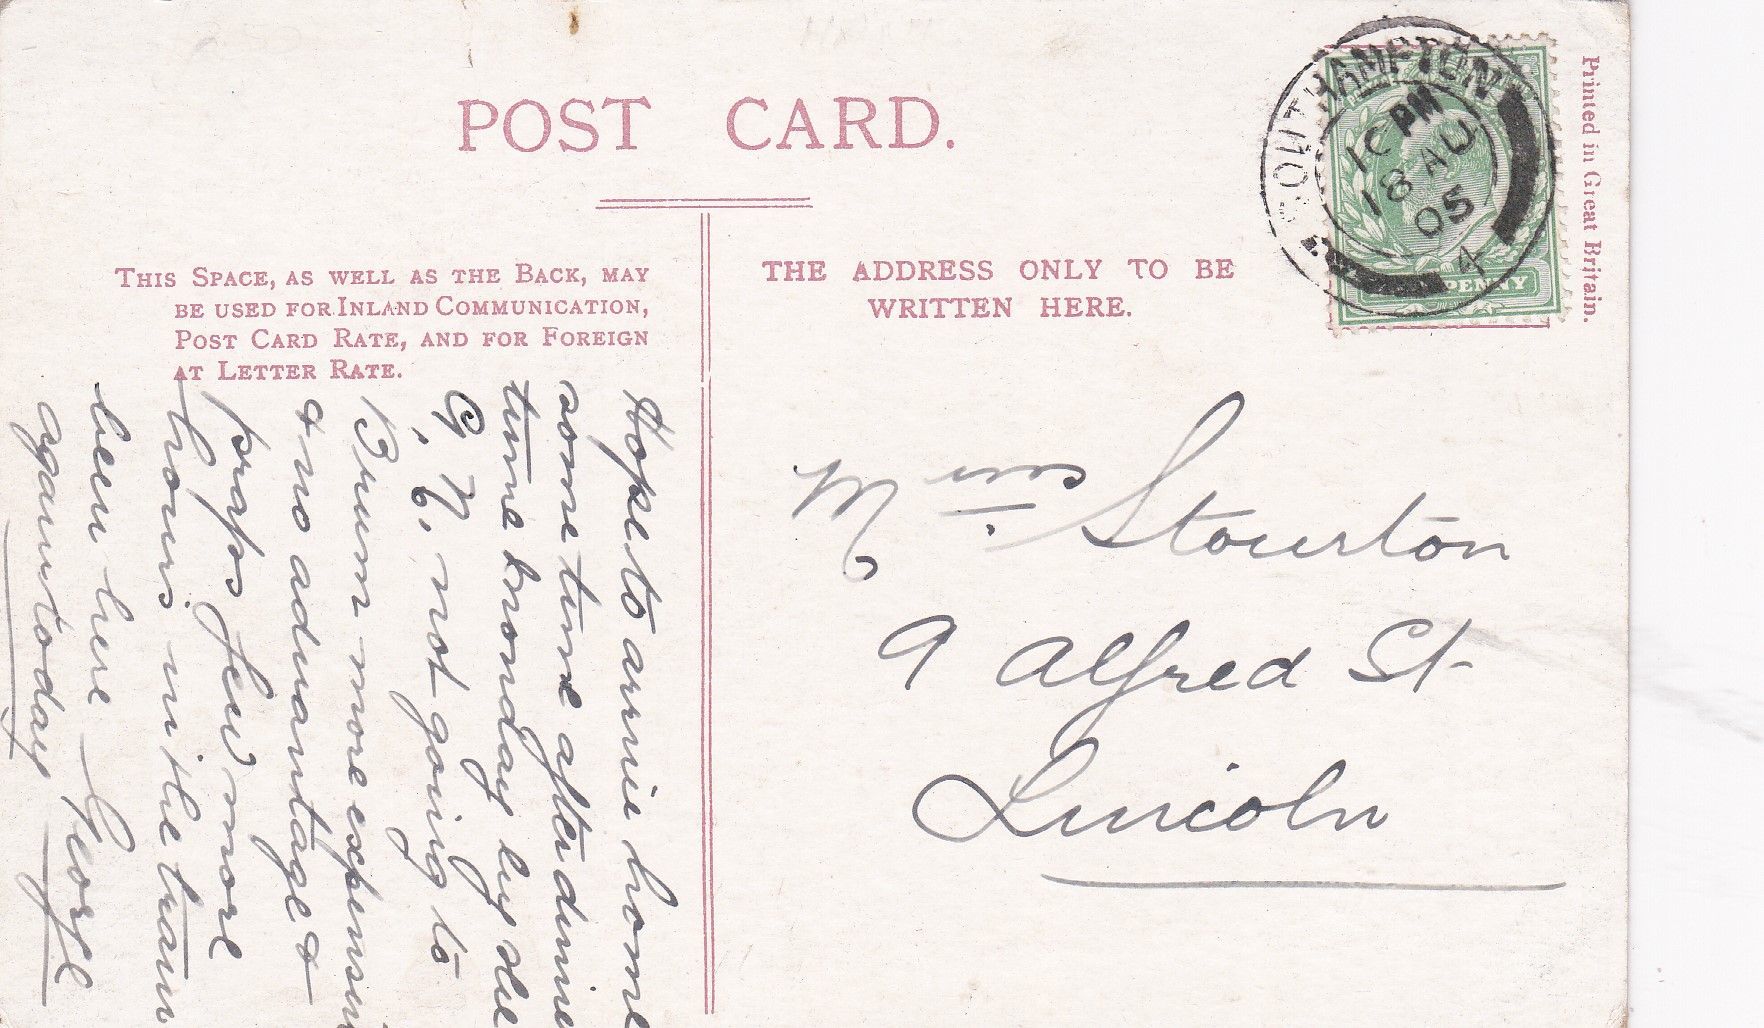 POST CARD.
THIS SPACE, AS WELL AS THE BACK, MAY
BE USED FOR INLAND COMMUNICATION,
POST CARD RATE, AND FOR FOREIGN
AT LETTER RATE.
THE ADDRESS ONLY TO BE
WRITTEN HERE.
Printed in Great Britain.
SOUTHAMPTON
10 PM
18 AU
05
4
PENNY
Hope to arrive home
some time after dinner
time monday by the
G. N. not going to
Brum more expensive
& no advantage &
praps few more
hours in the train
been here
again today
George
Mrs. Stourton
9 Alfred St
Lincoln